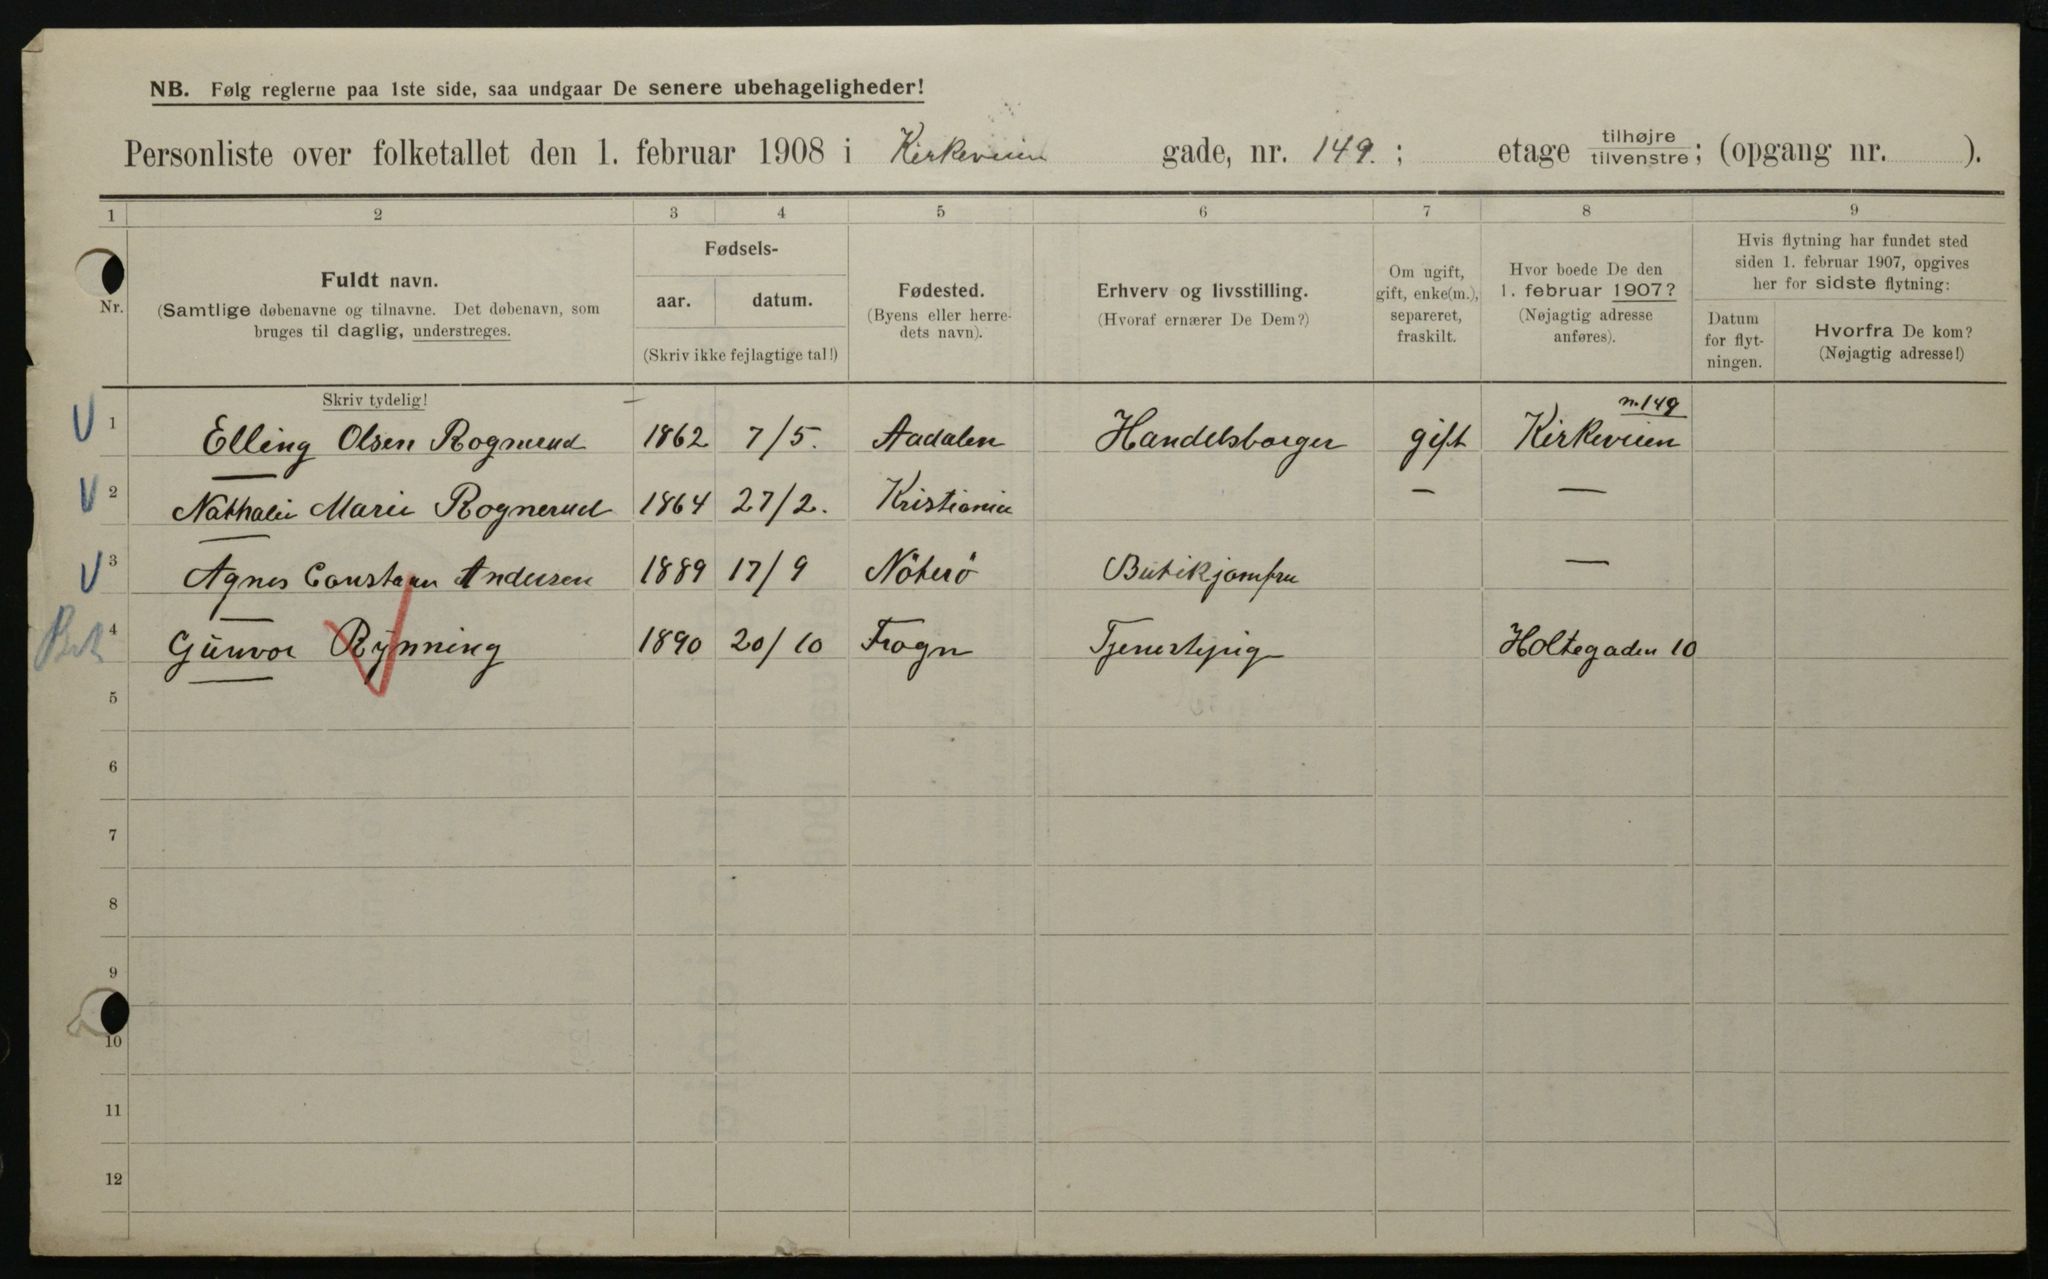 NB. Følg reglerne paa 1ste side, saa undgaar De senere ubehageligheder!
Personliste over folketallet den 1. februar 1908 i Kirkeveien gade, nr. 149. ; etage tilhøjre/tilvenstre; (opgang nr. ).
1 2 3 4 5 6 7 8 9
Nr.
Fuldt navn.
(Samtlige døbenavne og tilnavne. Det døbenavn, som
bruges til daglig, understreges.
Skriv tydelig!
Fødsels-
aar. datum.
(Skriv ikke fejlagtige tal!)
Fødested.
(Byens eller herre-
dets navn).
Erhverv og livsstilling.
(Hvoraf ernærer De Dem?)
Om ugift,
gift, enke(m.),
separeret,
fraskilt.
Hvor boede De den
1. februar 1907?
(Nøjagtig adresse
anføres).
Hvis flytning har fundet sted
siden 1. februar 1907, opgives
her for sidste flytning:
Datum
for flyt-
ningen.
Hvorfra De kom?
(Nøjagtig adresse!)
n. 149
1 Elling Olsen Rognerud 1862 7/5. Aadalen Handelsborger gift Kirkeveien
2 Nathalie Marie Rognerud 1864 27/2. Kristiania — —
3 Agnes Andersen 1889 17/9 Nöterö Butikjomfru —
4 Gunvor Rynning 1890 20/10 Frogn Tjenestepige Holtegaden 10
5
6
7
8
9
10
11
12